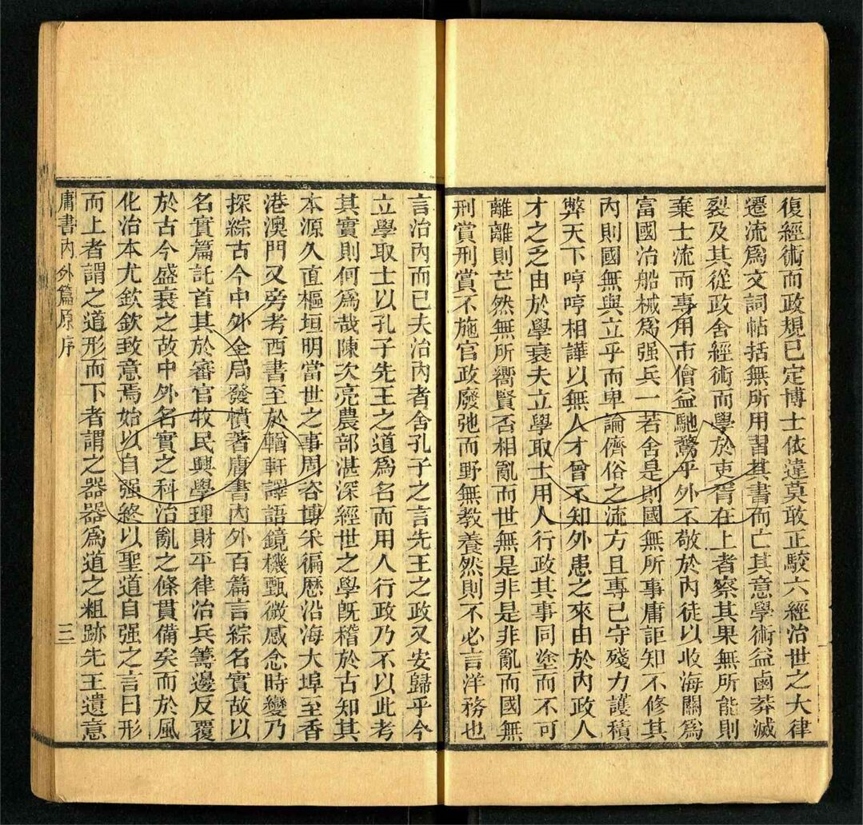 復經術而政規已定博士依違莫敢正駮六經治世之大律
遷流爲文詞帖括無所用習其書而亡其意學術益鹵莽滅
裂及其從政舍經術而學於吏胥在上者察其果無所能則
棄士流而專用市儈益馳騖乎外不敬於內徒以收海關爲
富國治船械爲强兵一若舍是則國無所事庸詎知不修其
內則國無與立乎而卑論儕俗之流方且專己守殘力護積
弊天下哼哼相譁以無人才曾不知外患之來由於內政人
才之乏由於學衰夫立學取士用人行政其事同塗而不可
離離則芒然無所嚮賢否相亂而世無是非是非亂而國無
刑賞刑賞不施官政廢弛而野無教養然則不必言洋務也
言治內而已夫治內者舍孔子之言先王之政又安歸乎今
立學取士以孔子先王之道爲名而用人行政乃不以此考
其實則何爲哉陳次亮農部湛深經世之學旣稽於古知其
本源久直樞垣明當世之事周咨博釆徧歷沿海大埠至香
港澳門又旁考西書至於輶軒譯語鏡機甄微感念時變乃
探綜古今中外全局發憤著庸書內外百篇言綜名實故以
名實篇託首其於審官牧民興學理財平律治兵籌邊反覆
於古今盛衰之故中外名實之科治亂之條貫備矣而於風
化治本尤欽欽致意焉始以自强終以聖道自强之言曰形
而上者謂之道形而下者謂之器器爲道之粗跡先王遺意
庸書內外篇原序
三